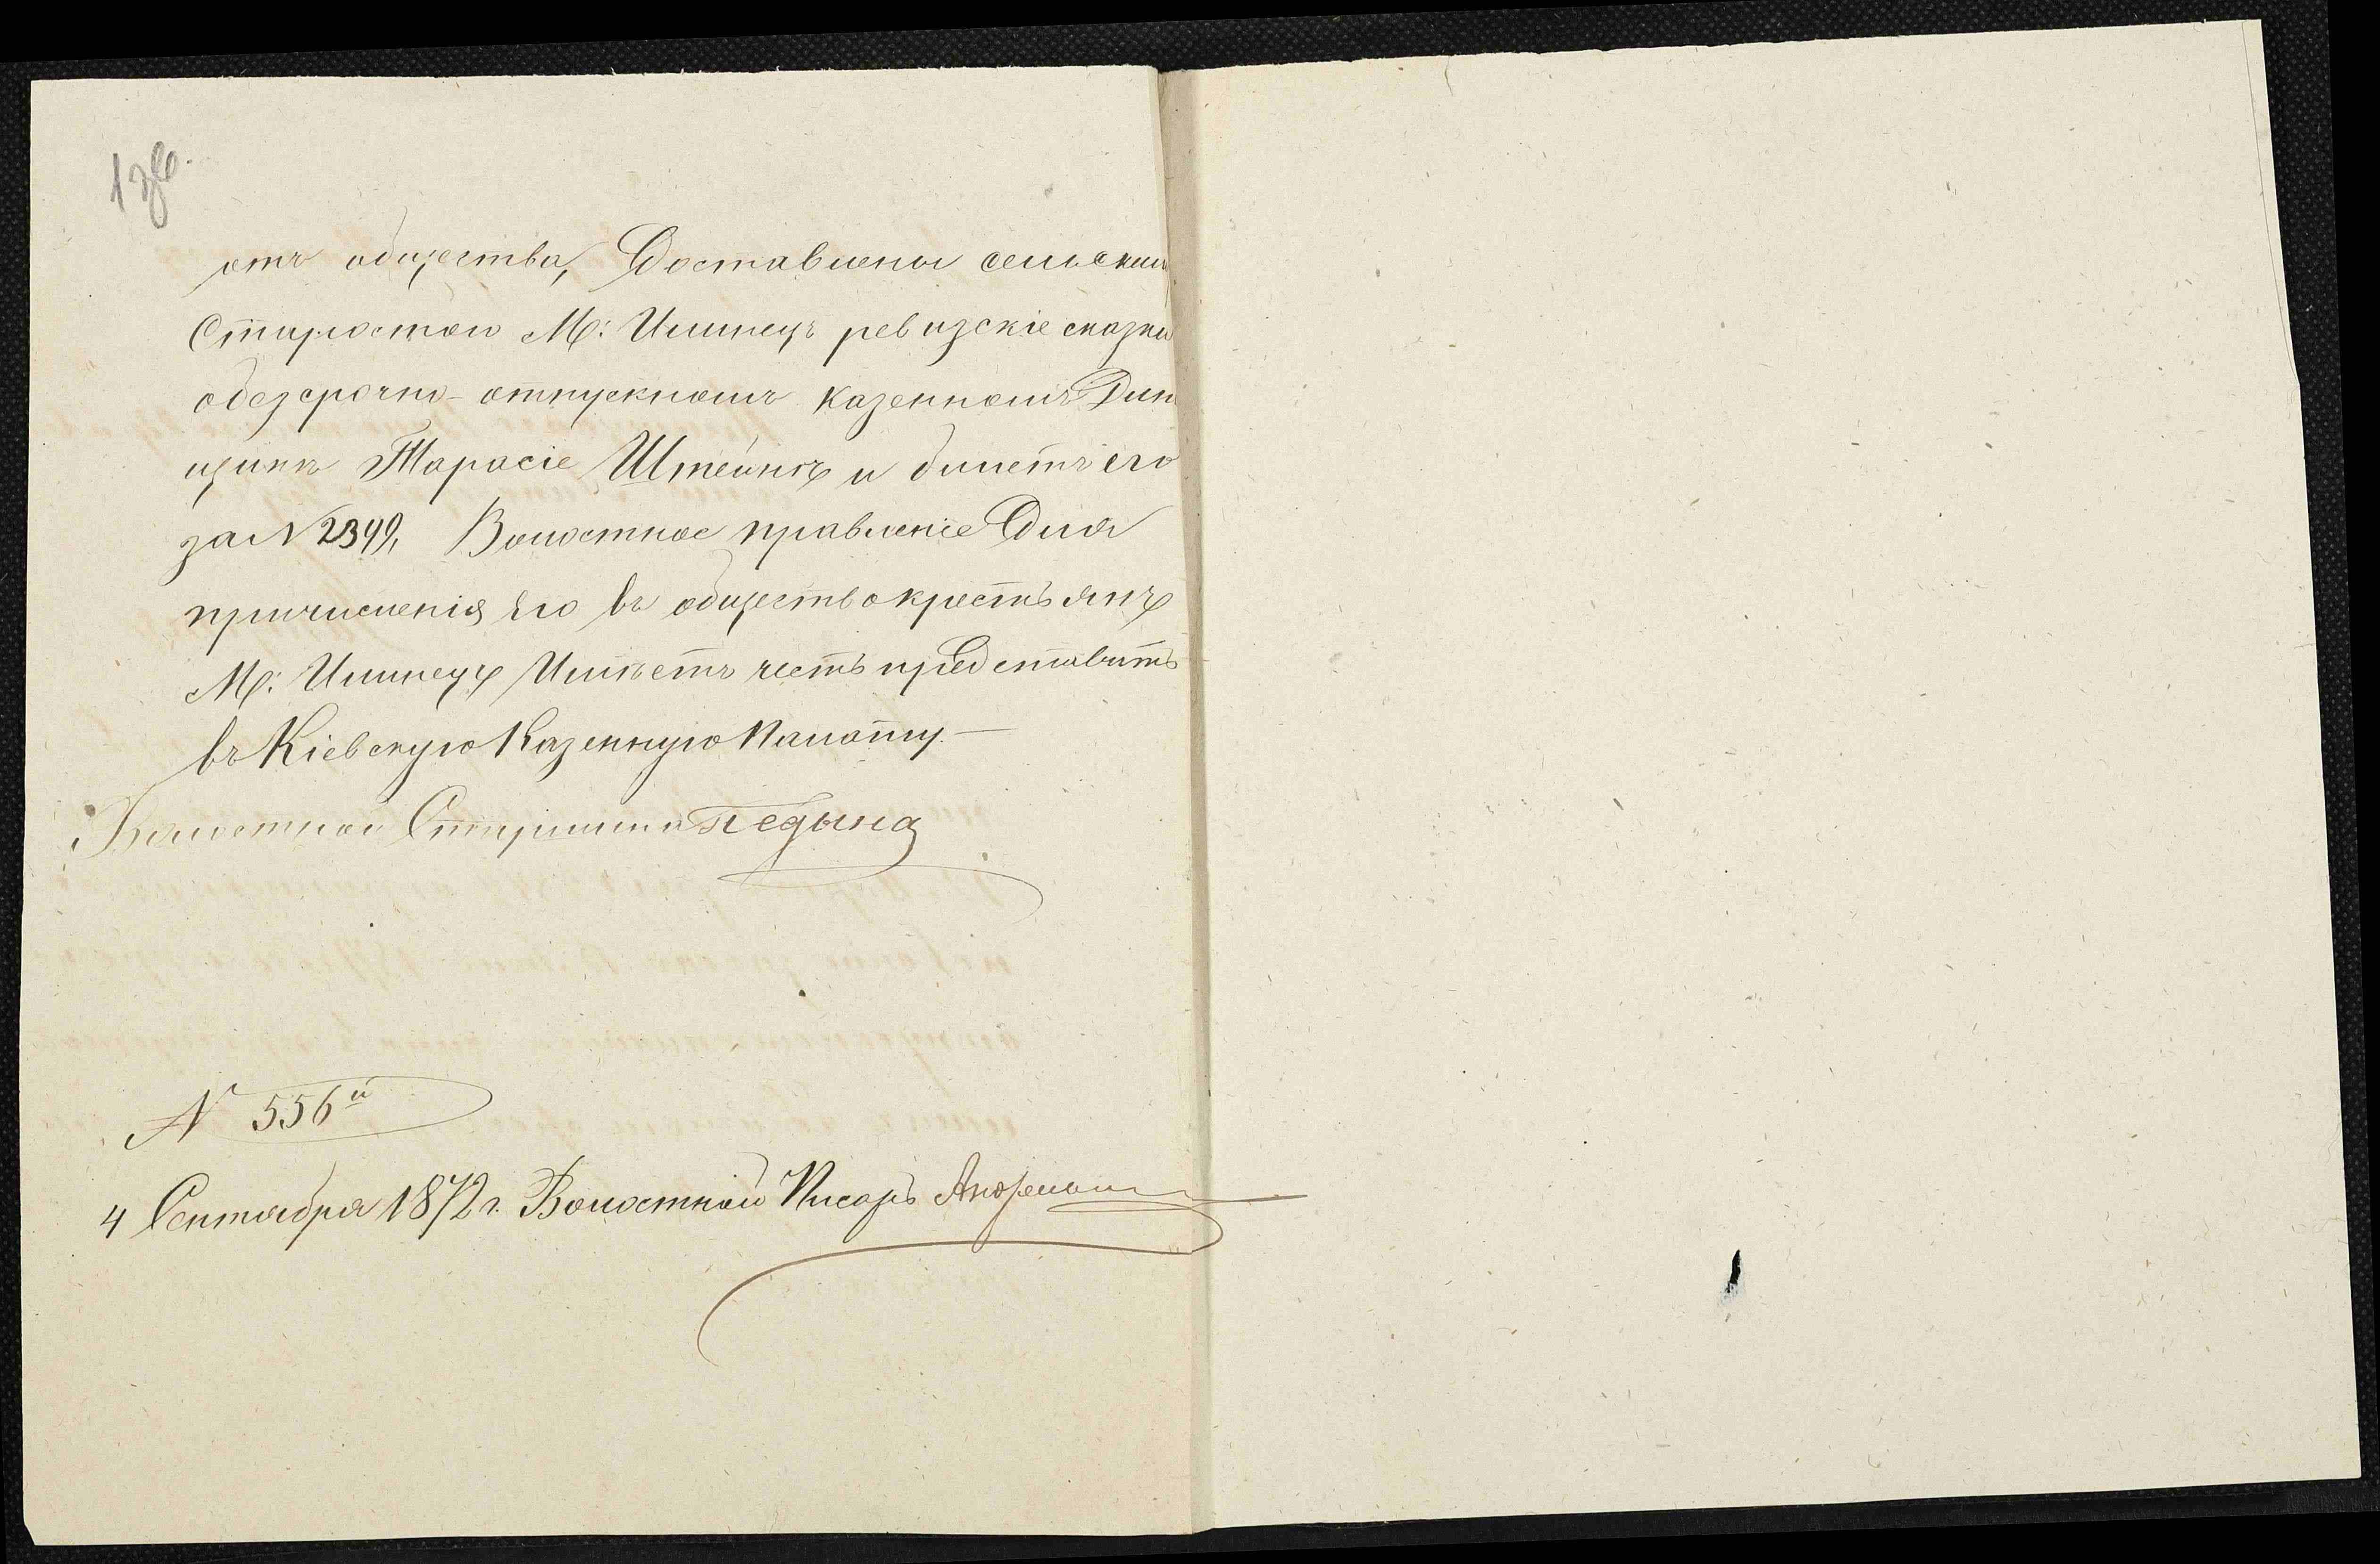 1 зв.
отъ общества, Доставлены сельским
Старостой М: Илинецъ ревизскіе сказки
обезсрочно-отпускномъ казенномъ Ден
щикѣ Тарасіе Штейнѣ и билетъ его
за N 2399, Волостное правленіе Для
причисленія Его въ общество крестьянъ
М: Илинецъ Имѣетъ честь представить
въ Кіевскую Казенную Палату.—
Волостной Старшина Педына
N 556й
4 Сентября 1872 г. Волостной Писарь